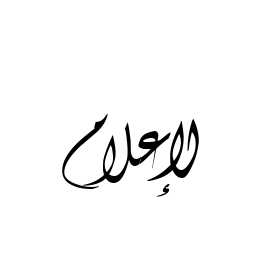 لإعلام